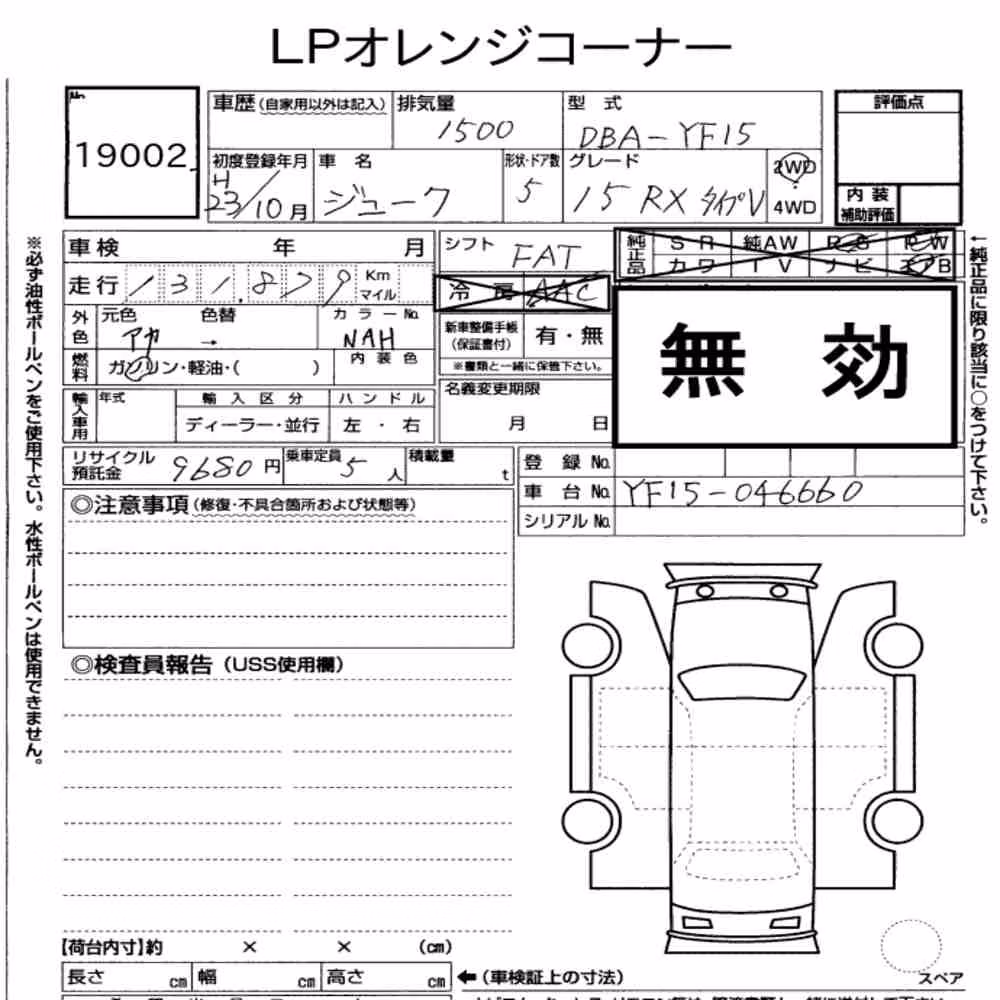 LPオレンジコーナー
No.
19002
車歴(自家用以外は記入)
排気量
1500
型式
DBA-YF15
評価点
初度登録年月
H
23/10月
車名
ジューク
形状・ドア数
5
グレード
15 RX タイプV
2WD
4WD
内装
補助評価
車検 年 月
シフト
FAT
純正品
SR 純AW PS PW
カワ TV ナビ エアB
走行 131,879 Km
マイル
冷房 AAC
外色
元色 色替
アカ →
カラーNo.
NAH
内装色
新車整備手帳
(保証書付)
有・無
※書類と一緒に保管下さい。
無効
燃料
ガソリン・軽油・( )
名義変更期限
月 日
輸入車用
年式
輸入区分
ハンドル
ディーラー・並行
左・右
リサイクル
預託金
9680円
乗車定員
5人
積載量
t
登録No.
車台No. YF15-046660
シリアルNo.
◎注意事項(修復・不具合箇所および状態等)
◎検査員報告(USS使用欄)
※必ず油性ボールペンをご使用下さい。水性ボールペンは使用できません。
←純正品に限り該当に○をつけて下さい。
【荷台内寸】約 × × (cm)
長さ cm 幅 cm 高さ cm
←(車検証上の寸法)
スペア